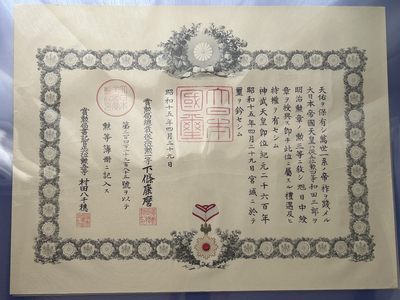 天佑ヲ保有シ萬世一系ノ帝祚ヲ踐メル
大日本帝國天皇ハ從五位勲四等和田三郎ヲ
明治勲章ノ勲三等ニ敍シ旭日中綬
章ヲ授與ス即チ此位ニ屬スル禮遇及ヒ
特權ヲ有セシム
神武天皇即位紀元二千六百年
昭和十五年四月二十九日宮城ニ於テ
璽ヲ鈐セシム
大日本國璽
昭和十五年四月二十九日
賞勲局總裁從四位勲二等下條康麿
勲等簿册ニ記入ス
村田八千穂